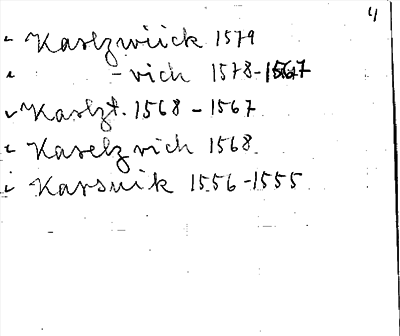 4
Karlzwiick 1579
-vich 1578-1567
Karlzt. 1568-1567
Karelzvich 1568
Karsnik 1556-1555